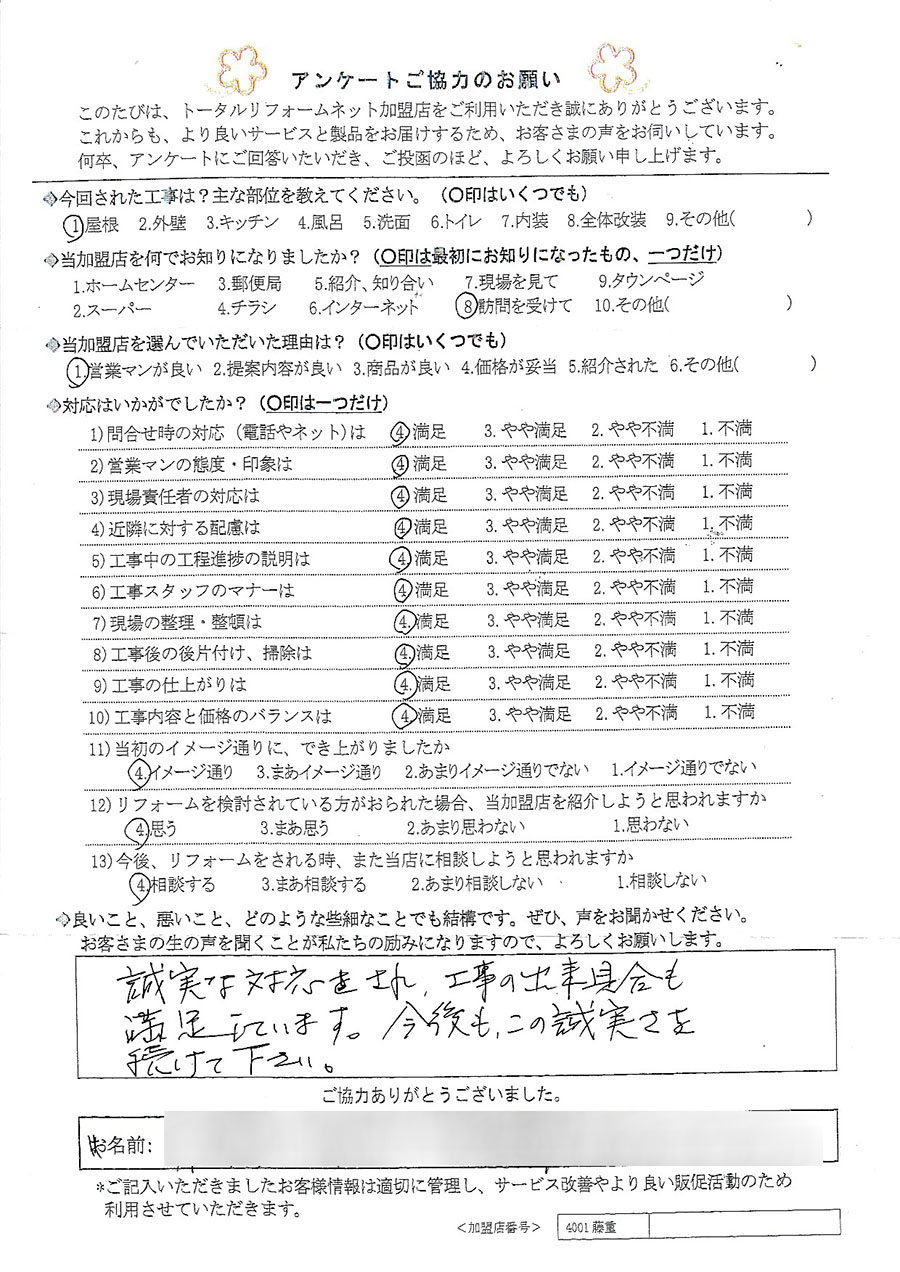 アンケートご協力のお願い
このたびは、トータルリフォームネット加盟店をご利用いただき誠にありがとうございます。
これからも、より良いサービスと製品をお届けするため、お客さまの声をお伺いしています。
何卒、アンケートにご回答いたいだき、ご投函のほど、よろしくお願い申し上げます。
◈今回された工事は？主な部位を教えてください。（〇印はいくつでも）
1.屋根 2.外壁 3.キッチン 4.風呂 5.洗面 6.トイレ 7.内装 8.全体改装 9.その他( )
◈当加盟店を何でお知りになりましたか？（〇印は最初にお知りになったもの、一つだけ）
1.ホームセンター 3.郵便局 5.紹介、知り合い 7.現場を見て 9.タウンページ
2.スーパー 4.チラシ 6.インターネット 8.訪問を受けて 10.その他( )
◈当加盟店を選んでいただいた理由は？（〇印はいくつでも）
1.営業マンが良い 2.提案内容が良い 3.商品が良い 4.価格が妥当 5.紹介された 6.その他( )
◈対応はいかがでしたか？（〇印は一つだけ）
1)問合せ時の対応（電話やネット)は 4.満足 3.やや満足 2.やや不満 1.不満
2)営業マンの態度・印象は 4.満足 3.やや満足 2.やや不満 1.不満
3)現場責任者の対応は 4.満足 3.やや満足 2.やや不満 1.不満
4)近隣に対する配慮は 4.満足 3.やや満足 2.やや不満 1.不満
5)工事中の工程進捗の説明は 4.満足 3.やや満足 2.やや不満 1.不満
6)工事スタッフのマナーは 4.満足 3.やや満足 2.やや不満 1.不満
7)現場の整理・整頓は 4.満足 3.やや満足 2.やや不満 1.不満
8)工事後の後片付け、掃除は 4.満足 3.やや満足 2.やや不満 1.不満
9)工事の仕上がりは 4.満足 3.やや満足 2.やや不満 1.不満
10)工事内容と価格のバランスは 4.満足 3.やや満足 2.やや不満 1.不満
11)当初のイメージ通りに、でき上がりましたか
4.イメージ通り 3.まあイメージ通り 2.あまりイメージ通りでない 1.イメージ通りでない
12)リフォームを検討されている方がおられた場合、当加盟店を紹介しようと思われますか
4.思う 3.まあ思う 2.あまり思わない 1.思わない
13)今後、リフォームをされる時、また当店に相談しようと思われますか
4.相談する 3.まあ相談する 2.あまり相談しない 1.相談しない
◈良いこと、悪いこと、どのような些細なことでも結構です。ぜひ、声をお聞かせください。
お客さまの生の声を聞くことが私たちの励みになりますので、よろしくお願いします。
誠実な対応をされ、工事の出来具合も
満足しています。今後も、この誠実さを
続けて下さい。
ご協力ありがとうございました。
お名前:
*ご記入いただきましたお客様情報は適切に管理し、サービス改善やより良い販促活動のため
利用させていただきます。
＜加盟店番号＞ 4001藤重